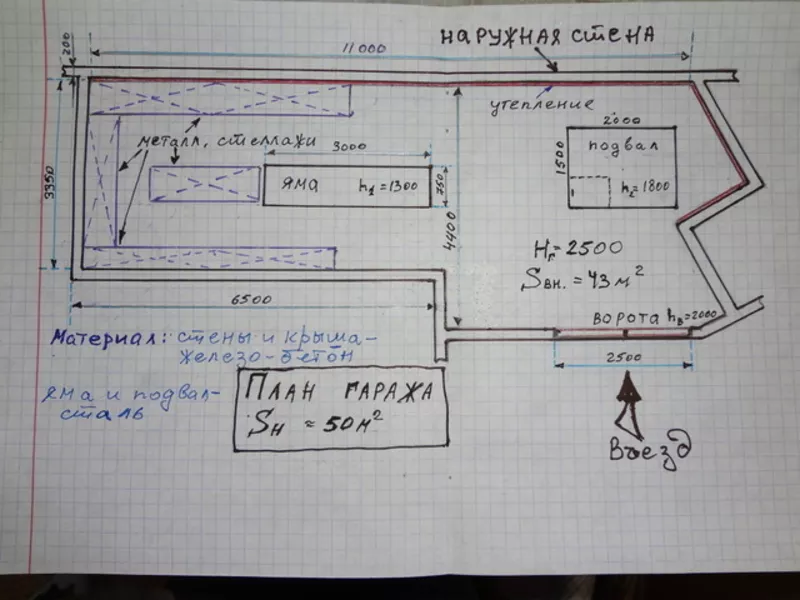 НАРУЖНАЯ СТЕНА
11 000
200
утепление
металл. стеллажи
3000
2000
1500
подвал
h₂=1800
яма h₁=1300
750
3350
4400
Hг=2500
Sвн.=43м²
6500
ВОРОТА hв=2000
2500
Материал: стены и крыша-
железо-бетон
яма и подвал-
сталь
ПЛАН ГАРАЖА
Sн ≈50м²
Въезд